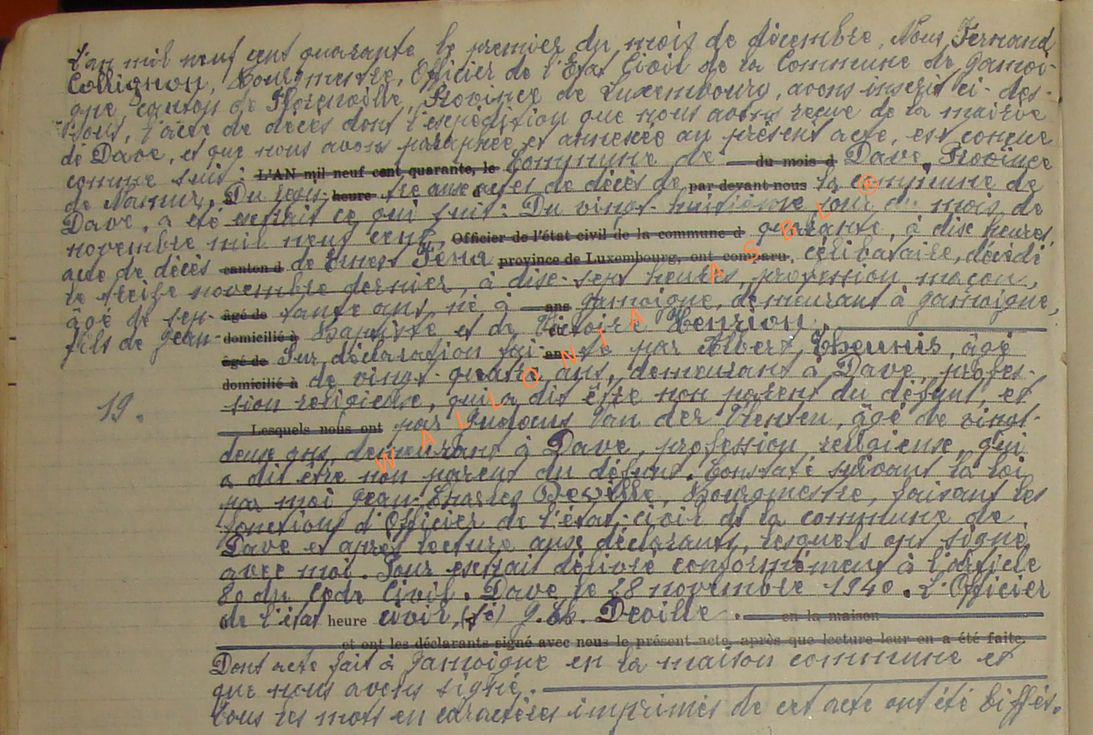 L'an mil neuf cent quarante le premier du mois de décembre, Nous Fernand
Collignon, Bourgmestre, Officier de l'Etat Civil de la Commune de Jamoi-
gne, canton de Florenville, Province de Luxembourg, avons inscrit ci-des-
sous, l'acte de décès dont l'expédition que nous avons reçue de la mairie
de Dave, et que nous avons paraphée et annexée au présent acte, est conçue
comme suit: L'AN mil neuf cent quarante, le Commune de du mois d Dave, Province
de Namur. Du heure aux actes de décès de par devant nous la commune de
Dave, a été extrait ce qui suit: Du vingt-huitième jour du mois de
novembre mil neuf cent, Officier de l'état civil de la commune d quarante, à dix heures,
acte de décès canton d de Ernest province de Luxembourg, ont comparu, célibataire, décédé
le treize novembre dernier, à dix-sept heures, profession maçon,
âgé de sep- âgé de tante ans, né à ans Jamoigne, demeurant à Jamoigne,
fils de Jean- domicilié à Baptiste et de Victoire Henrion.
âgé de Sur déclaration fai- an te par Albert Theunis, âgé
domicilié à de vingt-quatre ans, demeurant à Dave, profes-
19. sion religieuse, qui a dit être non parent du défunt, et
Lesquels nous ont par Van der âgé de vingt-
deux ans, demeurant à Dave, profession religieuse, qui
a dit être non parent du défunt. Constaté suivant la loi
par moi Jean-Charles Deville, Bourgmestre, faisant les
fonctions d'Officier de l'état-civil de la commune de
Dave et après lecture aux déclarants, lesquels ont signé
avec moi. Pour extrait délivré conformément à l'article
80 du Code Civil. Dave le 28 novembre 1940. L'Officier
de l'état heure civil, (sé) J. Ch. Deville. en la maison
et ont les déclarants signé avec nous le présent acte, après que lecture leur en a été faite,
Dont acte fait à Jamoigne en la maison commune et
que nous avons signé.
Tous les mots en caractères imprimés de cet acte ont été biffés.
WALLONIA ASBL ©